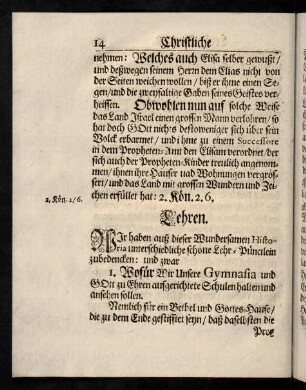 14 Christliche
nehmen: Welches auch Elisa selber gewust/
und deßwegen seinem Herrn dem Elias nicht von
der Seiten weichen wollen / biß er ihme einen Se-
gen/ und die zwenfaltige Gaben seines Geistes ver-
heissen. Obwohlen nun auf solche Weise
das Land Israel einen grossen Mann verlohren/ so
hat doch GOtt nichts destoweniger sich über sein
Volck erbarmet / und ihme zu einem Successore
in dem Propheten-Amt den Elisam verordnet/ der
sich auch der Propheten-Kinder treulich angenom-
men/ ihnen ihre Häuser uad Wohnungen vergrös-
sert/ und das Land mit grossen Wundern und Zei-
chen erfüllet hat: 2. Kön. 2, 6.
2. Kön. 2/6.
Lehren.
WIr haben auß dieser Wundersamen Histo-
ria unterschiedliche schöne Lehr-Püncklein
zubedencken: und zwar
1. Wofür Wir Unsere Gymnasia und
GOtt zu Ehren aufgerichtete Schulen halten und
ansehen sollen.
Nemlich für ein Bethel und Gottes-Hause/
die zu dem Ende gestifftet seyn/ daß daselbsten die
Pro-